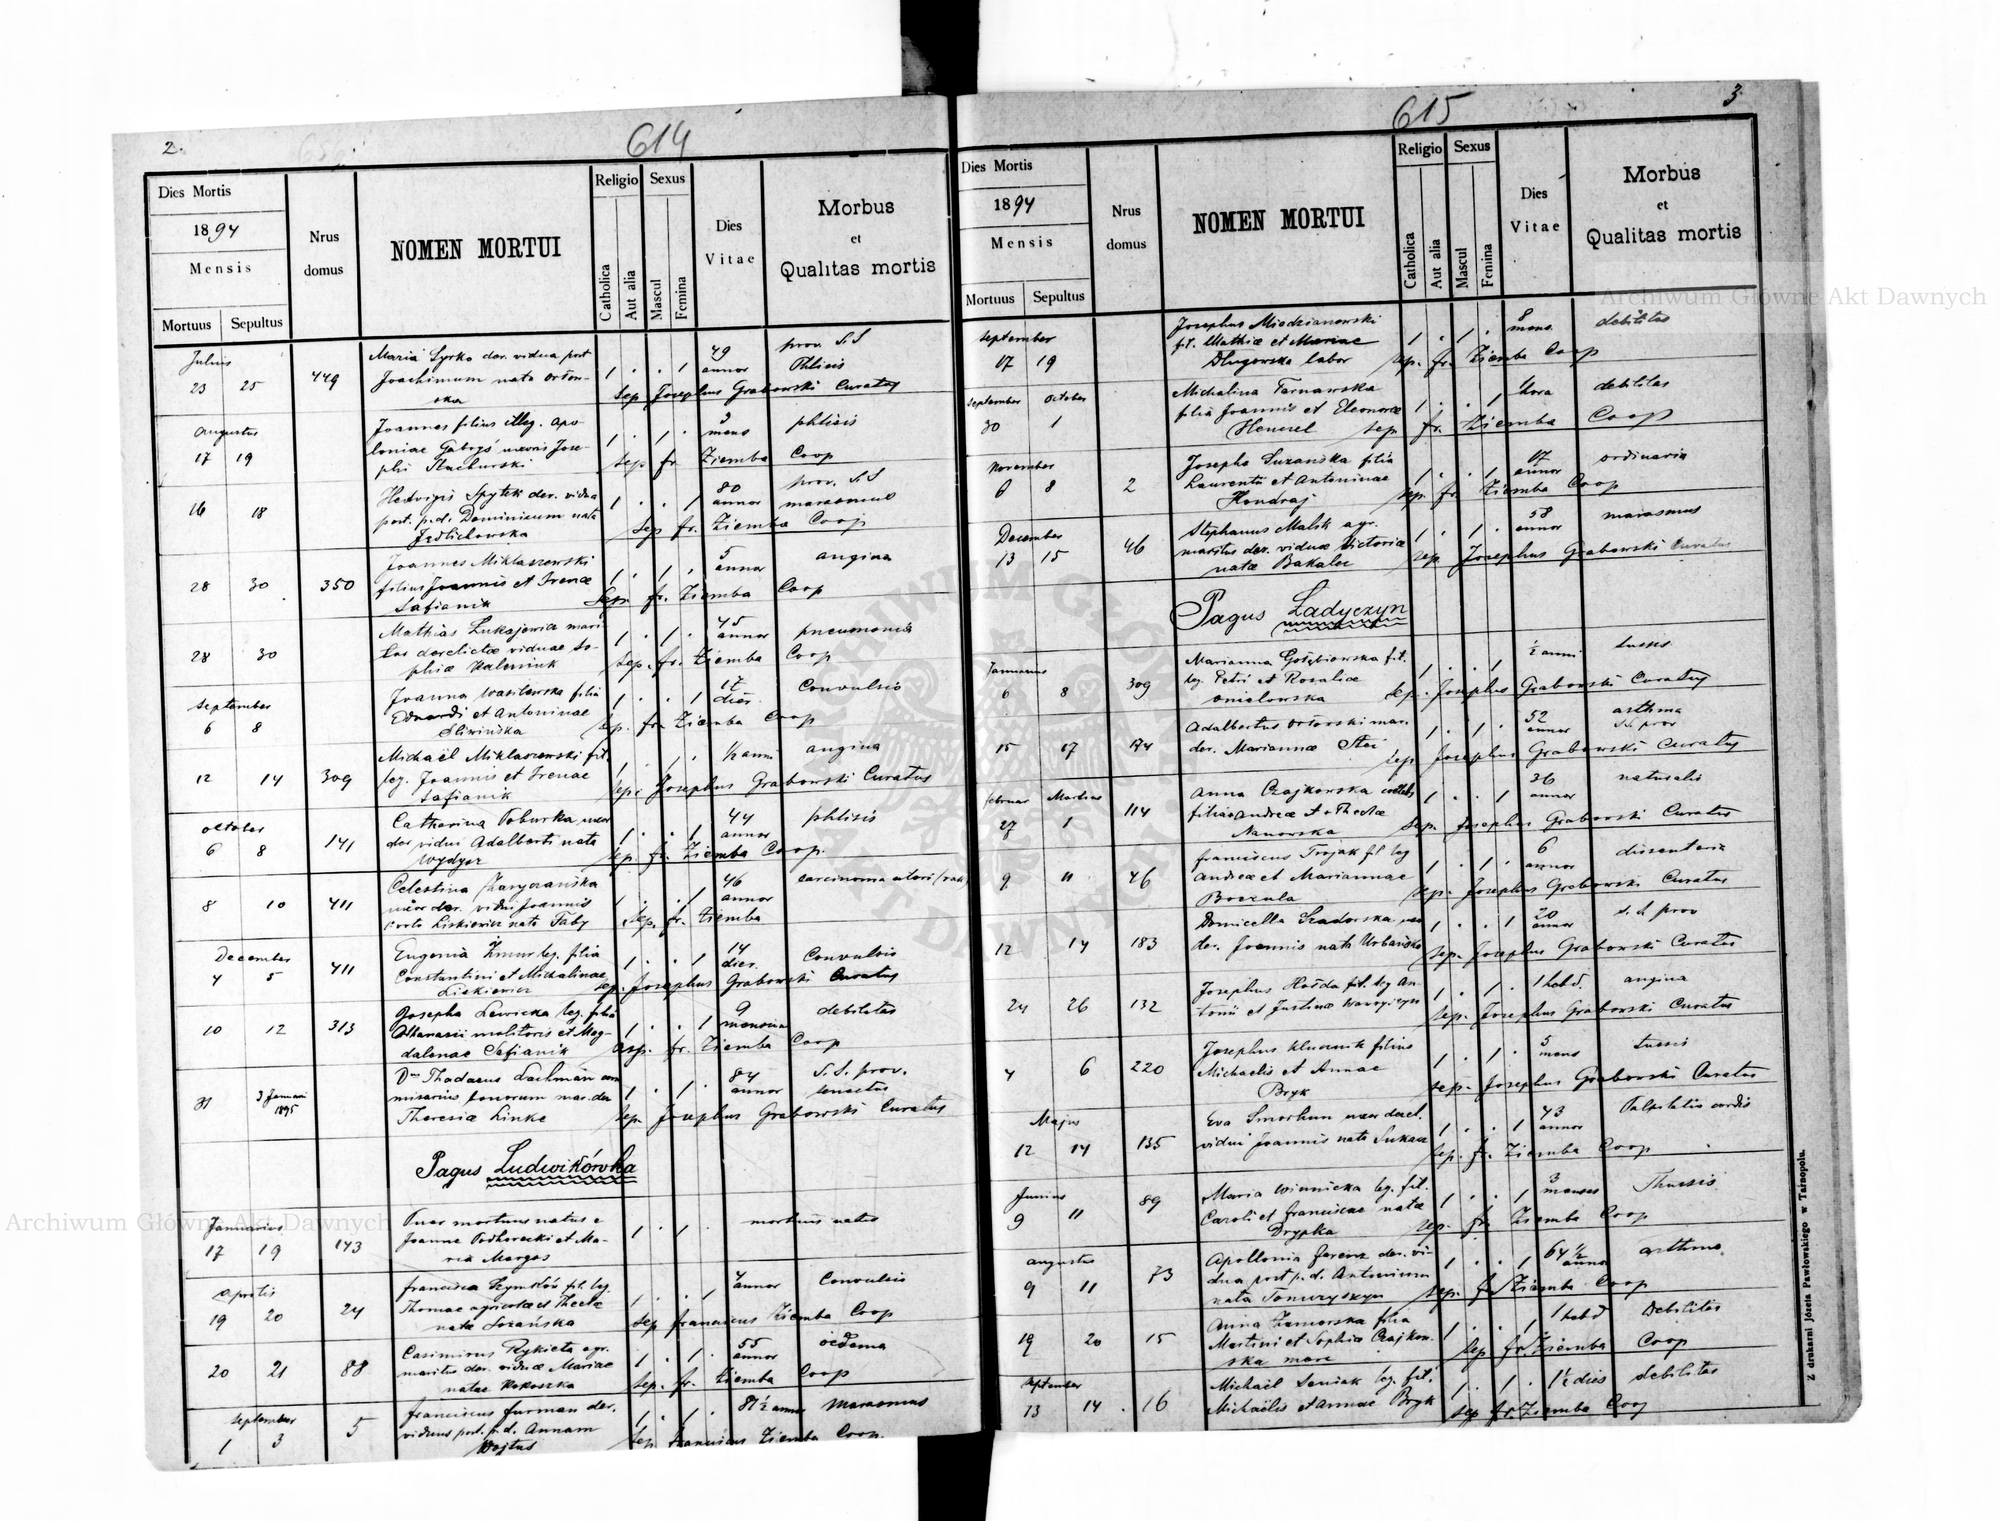 2.
614
Dies Mortis
1894
Mensis
Mortuus
Sepultus
Nrus domus
NOMEN MORTUI
Religio
Catholica
Aut alia
Sexus
Mascul
Femina
Dies Vitae
Morbus
et
Qualitas mortis
Julius
23 25 449
Maria Syrko der. vidua post
Joachimum nata Orłow-
ska
1 . . 1
49 annor
prov. S.S
Phtisis
Sep Josephus Grabowski Curatus
Augustus
17 19
Joannes filius illeg. Apo-
loniae
1 . 1 .
mens
phtisis
sep fr. Ziemba Coop
16 18
Hedvigis Spytek der. vidua
post. p.d. Dominicum nata
1 . . 1
80 annor
prov. S.S
marasmus
Sep fr. Ziemba Coop
28 30 350
Joannes Miklaszewski
filius Joannis et Irenae
Safianik
1 . 1 .
5 annor
angina
Sep. fr. Ziemba Coop
28 30
Mathias Łukajewicz mari-
tus derelictae viduae So-
phiae
1 . 1 .
45 annor
pneumonia
Sep. fr. Ziemba Coop
September
6 8
Joanna Wasilewska filia
Eduardi et Antoninae
Śliwińska
1 . . 1
17 dier.
Convulsio
Sep. fr. Ziemba Coop
12 14 309
Michaël Miklaszewski fil.
leg. Joannis et Irenae
Safianik
1 . 1 .
½ anni
angina
sep. Josephus Grabowski Curatus
October
6 8 141
Catharina Poburka uxor
der vidui Adalberti nata
Wydyer
1 . . 1
44 annor
phtisis
Sep. fr. Ziemba Coop.
8 10 411
Celestina
uxor der. vidui Joannis
Liskiewicz nata Taby
1 . . 1
46 annor
carcinoma uteri (rak)
Sep. fr. Ziemba
December
4 5 411
Eugenia Żmur leg. filia
Constantini et Michalinae
Liskiewicz
1 . . 1
14 dier.
Convulsio
sep. Josephus Grabowski Curatus
10 12 313
Josepha Lewicka leg. filia
Athanasii molitoris et Mag-
dalenae Safianik
1 . . 1
9 mensium
debilitas
sep. fr. Ziemba Coop
31 3 Januari 1895
Dnus Thadaeus Lachman com
misarius bonorum mar. der
Theresiae Linke
1 . 1 .
84 annor
S.S. prov.
senectus
Sep. Josephus Grabowski Curatus
Pagus Ludwikówka
Januarius
17 19 143
Puer mortuus natus e
Joanne Podhorecki et Ma-
ria Margas
1 1 .
mortuus natus
Aprilis
19 20 24
Francisca Szymków fil. leg.
Thomae agricolae et Theclae
natae Łozańska
1 . . 1
4 annor
Convulsio
Sep Franciscus Ziemba Coop
20 21 88
Casimirus Rykieta agr.
maritus der. viduae Mariae
natae Kokoszka
1 . 1 .
55 annor
oedema
Sep. fr. Ziemba Coop
September
1 3 5
Franciscus Furman der.
viduus post. p.d. Annam
Wojtus
1 . 1 .
81½ annor
Marasmus
Sep. Franciscus Ziemba Coop.
3.
615
Dies Mortis
1894
Mensis
Mortuus
Sepultus
Nrus domus
NOMEN MORTUI
Religio
Catholica
Aut alia
Sexus
Mascul
Femina
Dies Vitae
Morbus
et
Qualitas mortis
September
17 19
Josephus Miedzianowski
fil. Mathiae et Mariae
Długowska labor
1 . 1 .
8 mens.
debilitas
Sep. fr. Ziemba Coop
September October
30 1
Michalina Tarnawska
filia Joannis et Eleonorae
Hencel
1 . . 1
1 hora
debilitas
Sep fr. Ziemba Coop
November
6 8 2
Josepha Suzańska filia
Laurentii et Antoninae
Hondraj
1 . . 1
17 annor
ordinaria
Sep. fr. Ziemba Coop
December
13 15 46
Stephanus Malik agr.
maritus der. viduae Victoriae
natae Bakalec
1 . 1 .
58 annor
marasmus
Sep. Josephus Grabowski Curatus
Pagus Ladyczyn
Januarius
6 8 309
Marianna Gołębiowska fil.
leg. Petri et Rosaliae
1 . . 1
½ anni
tussis
Sep. Josephus Grabowski Curatus
15 17 174
Adalbertus Ostrowski mar.
der. Mariannae
1 . 1 .
52 annor
asthma
S.S. prov
sep Josephus Grabowski Curatus
Februar Martius
27 1 114
Anna Czajkowska coelebs
filia Andreae et Theclae
Nanowska
1 . . 1
36 annor
naturalis
Sep. Josephus Grabowski Curatus
9 11 46
Franciscus Trojak fil leg
Andreae et Mariannae
Boczula
1 . 1 .
6 annor
dissenteria
Sep. Josephus Grabowski Curatus
12 14 183
Domicella Szadorska uxor
der. Joannis nata Urbańska
1 . . 1
20 annor
S.S. prov
Sep. Josephus Grabowski Curatus
24 26 132
Josephus Hołda fil. leg An-
tonii et Justinae
1 . 1 .
1 hebd.
angina
Sep. Josephus Grabowski Curatus
4 6 220
Josephus Klucznik filius
Michaelis et Annae
Bryk
1 . 1 .
5 mens
tussis
Sep. Josephus Grabowski Curatus
Majus
12 14 135
Eva Smorhun uxor derel.
vidui Joannis nata Łukasz
1 . . 1
43 annor
Palpitatio cordis
Sep. fr. Ziemba Coop
Junius
9 11 89
Maria Winnicka leg. fil.
Caroli et Franciscae natae
Drypka
1 . . 1
3 menses
Thussis
Sep. fr. Ziemba Coop
Augustus
9 11 73
Apollonia Ferenz der. vi-
dua post p.d. Antonium
nata
1 . . 1
64½ annor
asthma
Sep. fr. Ziemba Coop
19 20 15
Anna Zamorska filia
Martini et Sophiae Czajkow-
ska
1 . . 1
1 hebd
Debilitas
Sep fr. Ziemba Coop
September
13 14 16
Michaël Seniak leg. fil.
Michaëlis et Annae Bryk
1 . 1 .
1½ dies
debilitas
Sep fr. Ziemba Coop
Z drukarni Józefa Pawłowskiego w Tarnopolu.
Archiwum Główne Akt Dawnych
Archiwum Główne Akt Dawnych
ARCHIWUM GŁÓWNE AKT DAWNYCH